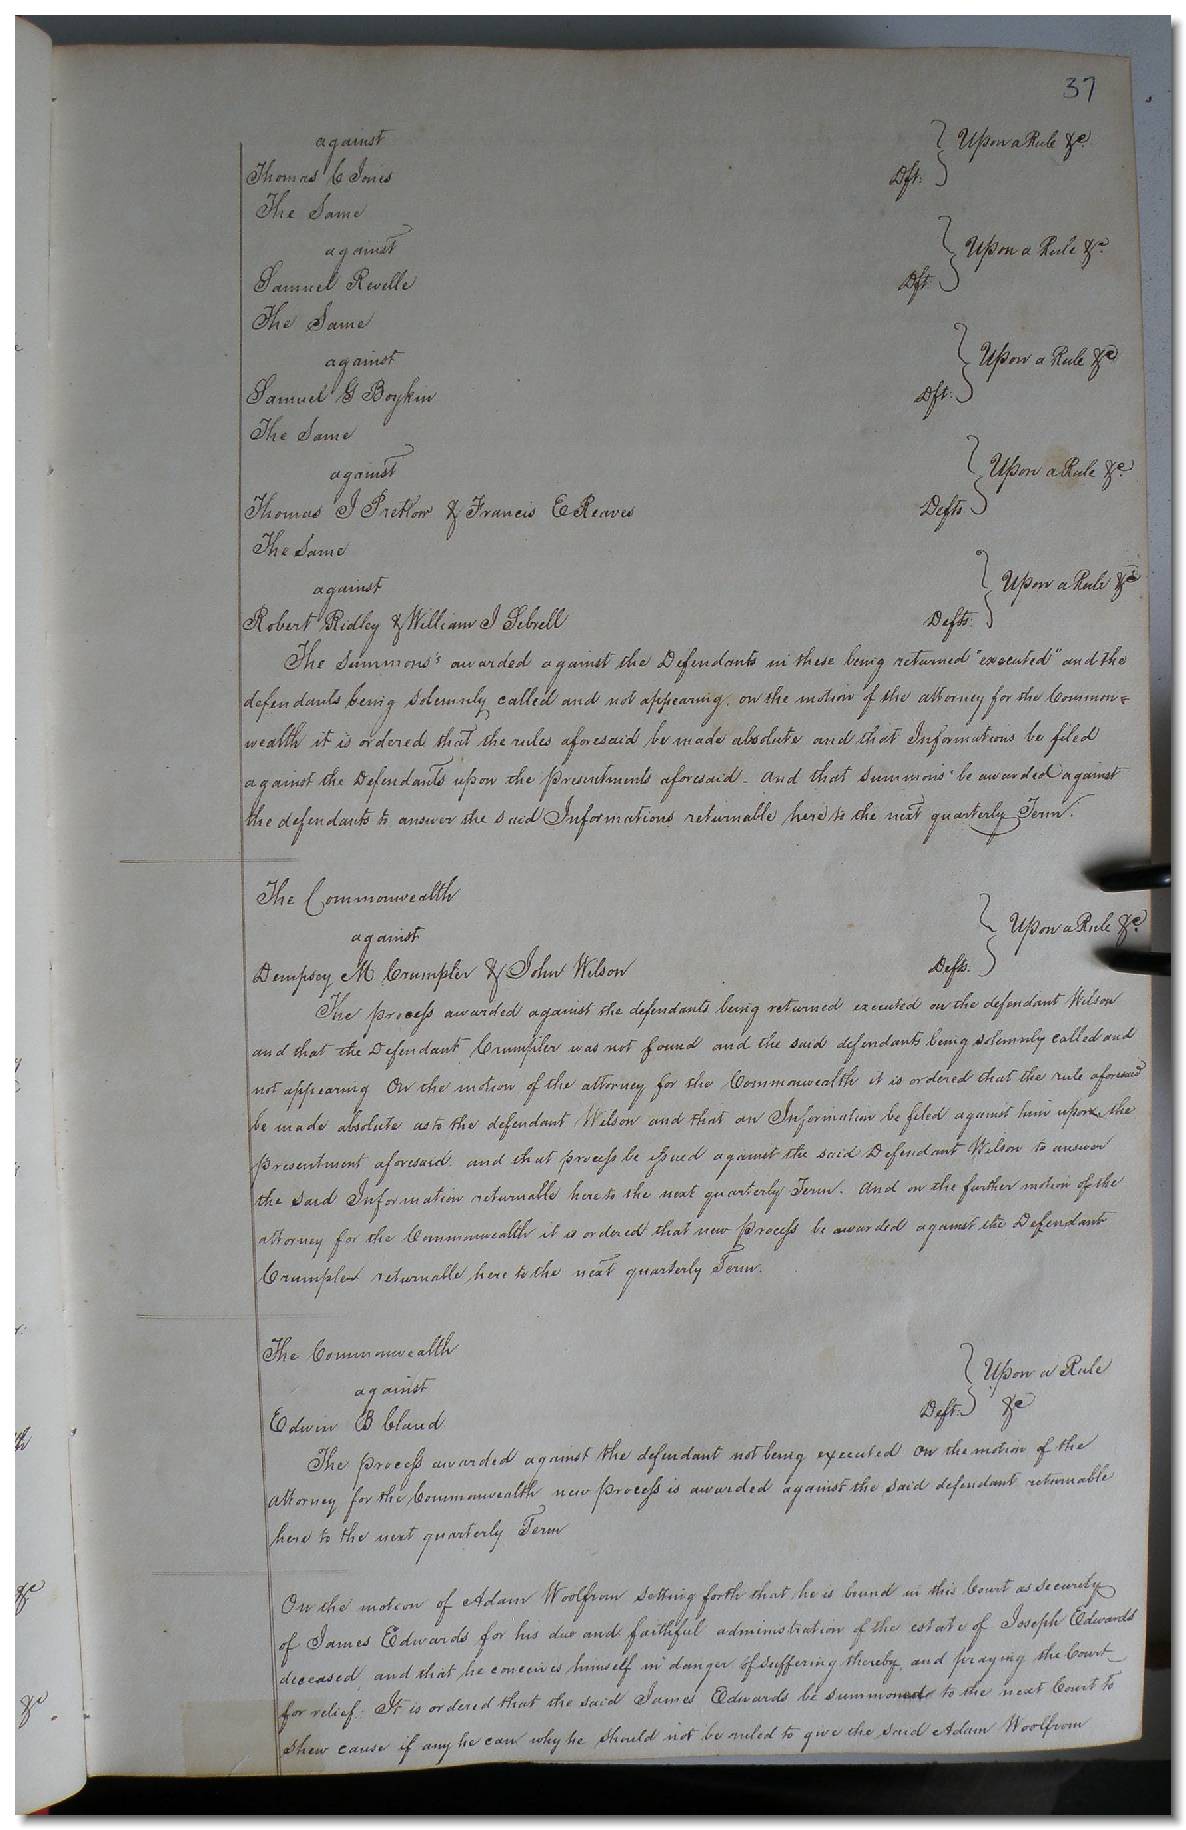 37
against } Upon a Rule &c.
Thomas C Jones Dft:
The Same
against } Upon a Rule &c.
Samuel Revelle Dft
The Same
against } Upon a Rule &c
Samuel G Boykin Dft:
The Same
against } Upon a Rule &c.
Thomas J Pretlow & Francis E Reaves Defts
The Same
against } Upon a Rule &c
Robert Ridley & William J Sebrell Defts.
The Summons's awarded against the Defendants in these being returned "executed" and the
defendants being solemnly called and not appearing. on the motion of the attorney for the Common=
wealth it is ordered that the rules aforesaid be made absolute and that Informations be filed
against the Defendants upon the presentments aforesaid - and that Summons' be awarded against
the defendants to answer the said Informations returnable here to the next quarterly Term.
The Commonwealth
against } Upon a Rule &c.
Dempsey M Crumpler & John Wilson Defts.
The process awarded against the defendants being returned executed on the defendant Wilson
and that the Defendant Crumpler was not found and the said defendants being solemnly called and
not appearing On the motion of the attorney for the Commonwealth it is ordered that the rule aforesaid
be made absolute as to the defendant Wilson and that an Information be filed against him upon the
presentment aforesaid. and that process be issued against the said Defendant Wilson to answer
the said Information returnable here to the next quarterly Term. And on the further motion of the
attorney for the Commonwealth it is ordered that new process be awarded against the Defendant
Crumpler returnable here to the next quarterly Term.
The Commonwealth
against } Upon a Rule
Edwin B Claud Deft. &c
The process awarded against the defendant not being executed On the motion of the
attorney for the Commonwealth new process is awarded against the said defendant returnable
here to the next quarterly Term
On the motion of Adam Woolfrom setting forth that he is bound in this Court as security
of James Edwards for his due and faithful administration of the estate of Joseph Edwards
deceased, and that he conceives himself in danger of suffering thereby, and praying the Court
for relief. It is ordered that the said James Edwards be summoned to the next Court to
shew cause if any he can why he should not be ruled to give the said Adam Woolfrom